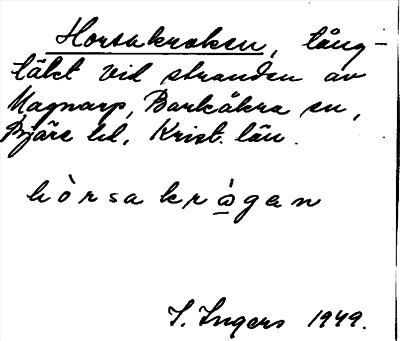 Horsakroken, lång-
täkt vid stranden av
Magnarp, Barkåkra sn,
Bjäre hd, Krist. län.
hòrsakrågan
I. Ingers 1949.